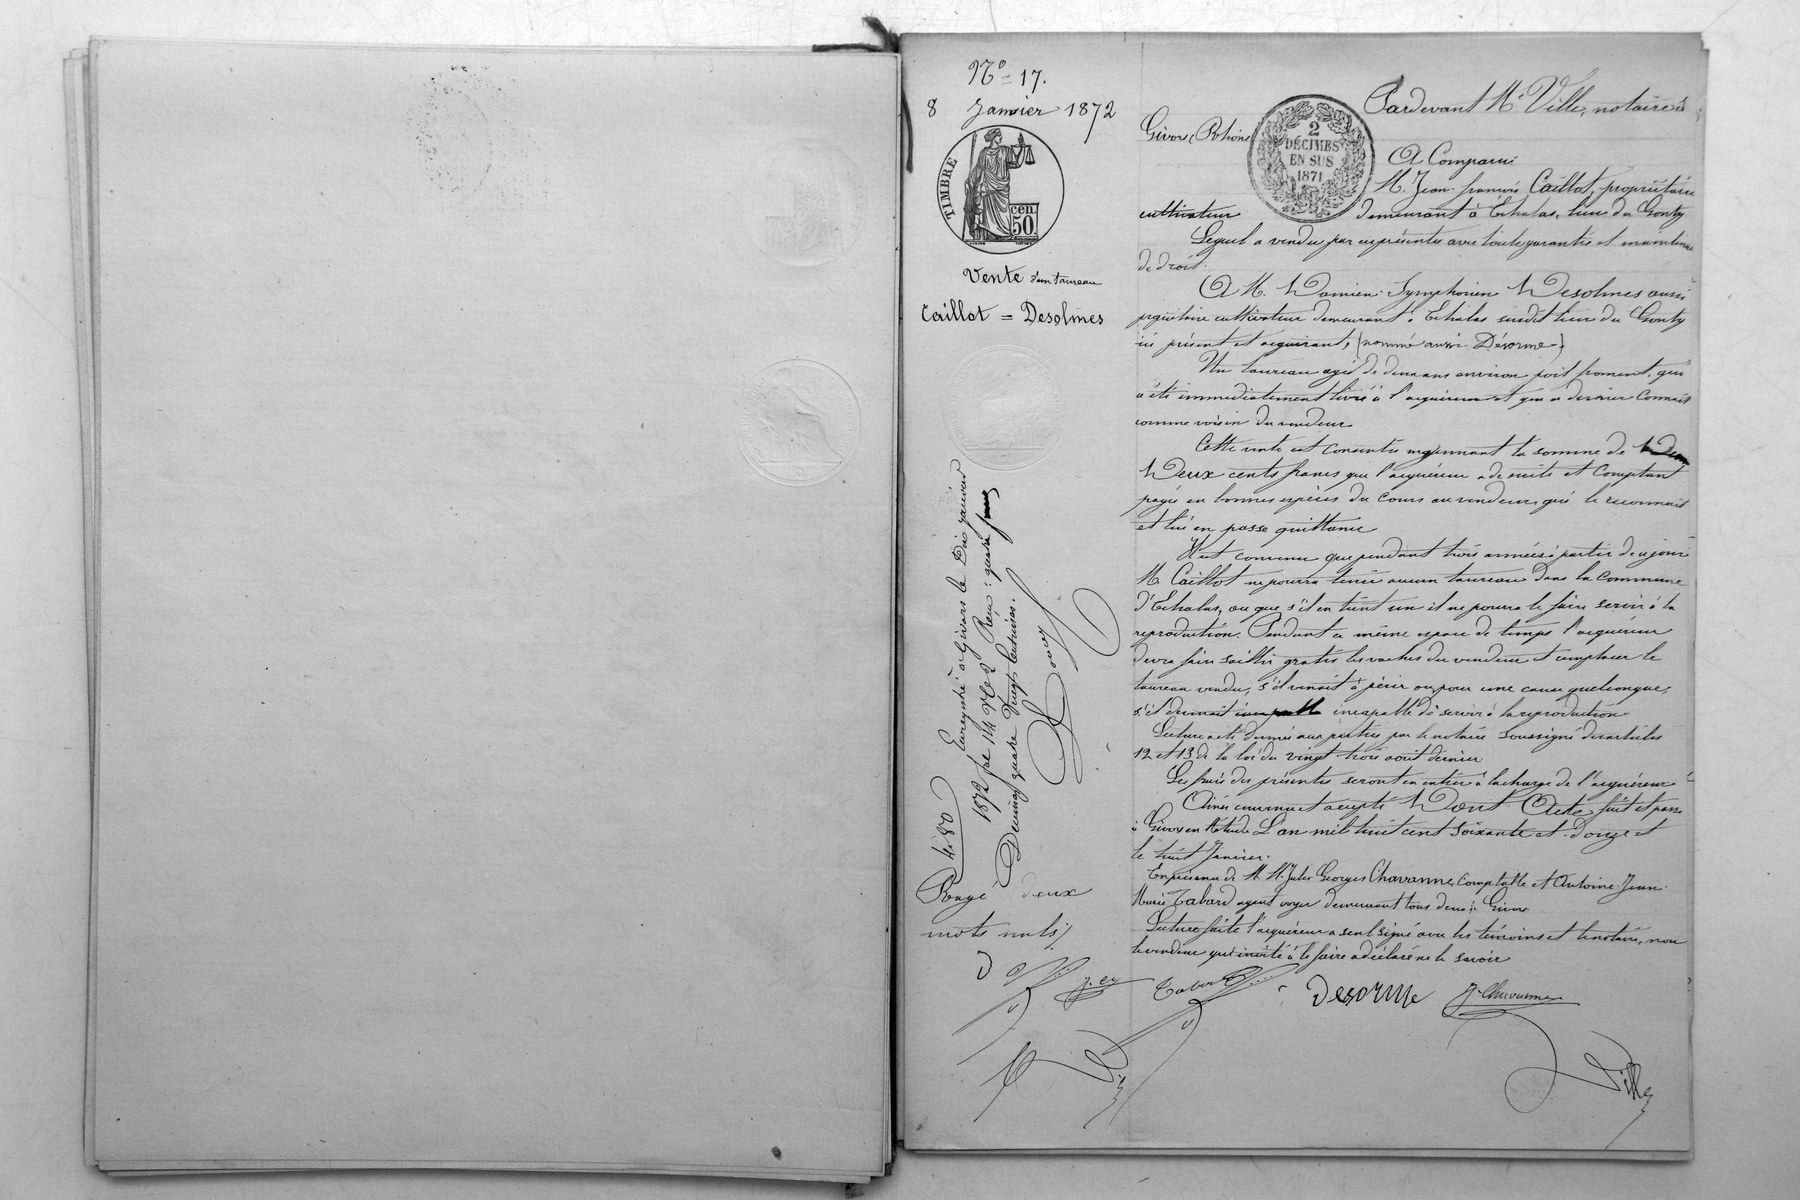 N° = 17.
8 Janvier 1872
TIMBRE
cen. 50
Vente d'un taureau
Caillot = Desolmes
2
DÉCIMES
EN SUS
1871
Pardevant Me Ville, notaire à
Givors (Rhône
A Comparu
M. Jean-françois Caillot, propriétaire
cultivateur demeurant à Echalas, lieu du Gonty
Lequel a vendu par ces présentes avec toute garantie et maintenue
de droit.
A M. Damien-Symphorien Desolmes aussi
propriétaire cultivateur demeurant à Echalas susdit lieu du Gonty
ici présent et acquérant, (nommé aussi Désorme).
Un taureau agé de deux ans environ poil froment, qui
a été immédiatement livré à l'acquéreur et que ce dernier connait
comme voisin du vendeur
Cette vente est consentie moyennant la somme de
Deux cents francs que l'acquéreur a de suite et comptant
payée en bonnes espèces du cours au vendeur qui le reconnait
et lui en passe quittance
Il est convenu que pendant trois années à partir de ce jour
M. Caillot ne pourra tenir aucun taureau dans la commune
d'Echalas, ou que s'il en tient un il ne pourra le faire servir à la
reproduction. Pendant ce même espace de temps l'acquéreur
devra faire saillir gratis les vaches du vendeur et remplacer le
taureau vendu, s'il venait à périr ou pour une cause quelconque,
s'il devenait incapable de servir à la reproduction
Lecture a été donnée aux parties par le notaire soussigné des articles
12 et 13 de la loi du vingt-trois août dernier
Les frais des présentes seront en entier à la charge de l'acquéreur
Ainsi convenu et accepté Dont Acte fait et passé
à Givors en l'étude L'an mil huit cent soixante et douze et
le huit Janvier.
En présence de M. M. Jules Georges Chavanne, comptable et Antoine-Jean-
Marie Tabard agent voyer demeurant tous deux à Givors
Lecture faite l'acquéreur a seul signé avec les témoins et le notaire, non
le vendeur qui invité à le faire a déclaré ne le savoir
Tabard
Desorme
J. Chavanne
Ville
4.80
Enregistré à Givors le Dix janvier
1872 fol 14 Vo C 2 Reçu: quatre francs
Decimes quatre Vingt Centimes.
Rayé deux
mots nuls
J. Ch